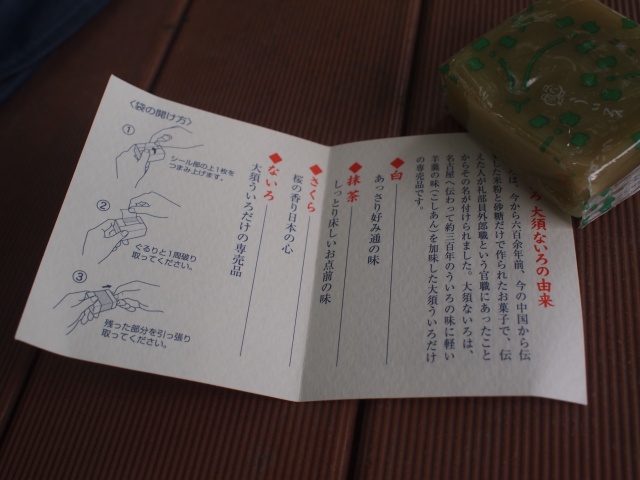 大須ないろの由来
は、今から六百余年前、今の中国から伝
米粉と砂糖だけで作られたお菓子で、伝
えた人が礼部員外郎職という官職にあったこと
からその名が付けられました。大須ないろは、
名古屋へ伝わって約三百年のういろの味に軽い
羊羹の味(こしあん)を加味した大須ういろだけ
の専売品です。
◆白
あっさり好み通の味
◆抹茶
しっとり床しいお点前の味
◆さくら
桜の香り日本の心
◆ないろ
大須ういろだけの専売品
〈袋の開け方〉
①
シール部の上1枚を
つまみ上げます。
②
ぐるりと1周破り
取ってください。
③
残った部分を引っ張り
取ってください。